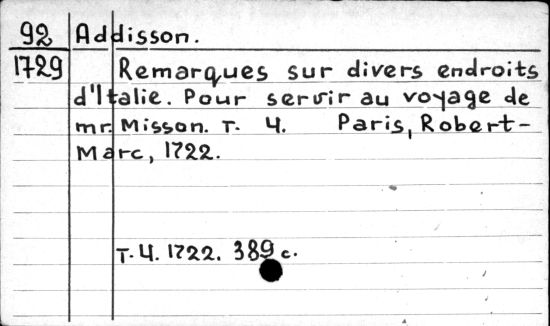 92 Addisson.
1729 Remarques sur divers endroits
d'Italie. Pour servir au voyage de
mr. Misson. T. 4. Paris, Robert-
Marc, 1722.
T. 4. 1722. 389 c.